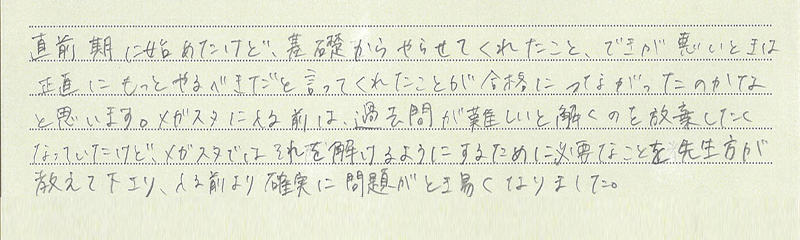 直前期に始めたけど、基礎からやらせてくれたこと、できが悪いときは
正直にもっとやるべきだと言ってくれたことが合格につながったのかな
と思います。メガスタに入る前は、過去問が難しいと解くのを放棄したく
なっていたけど、メガスタではそれを解けるようにするために必要なことを先生方が
教えて下さり、入る前より確実に問題がとき易くなりました。